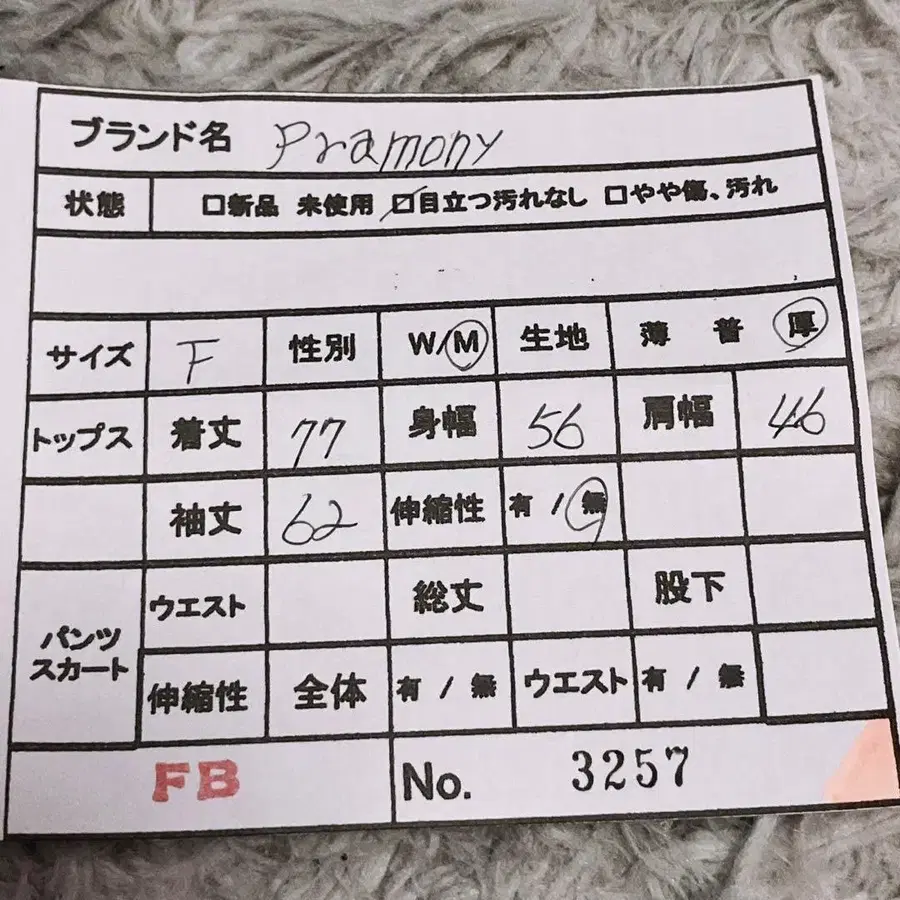 ブランド名 Pramony
状態 □新品 未使用 ☑目立つ汚れなし □やや傷、汚れ
サイズ F 性別 W/M 生地 薄 普 厚
トップス 着丈 77 身幅 56 肩幅 46
袖丈 62 伸縮性 有 / 無
パンツ
スカート
ウエスト 総丈 股下
伸縮性 全体 有 / 無 ウエスト 有 / 無
FB No. 3257